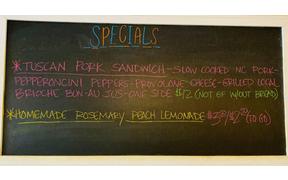 SPECIALS
*TUSCAN PORK SANDWICH-SLOW COOKED NC PORK-
PEPPERONCINI PEPPERS-PROVOLONE-CHEESE-GRILLED LOCAL
BRIOCHE BUN-AU JUS-ONE SIDE $12 (NOT GF W/OUT BREAD)
*HOMEMADE ROSEMARY PEACH LEMONADE (TO GO)